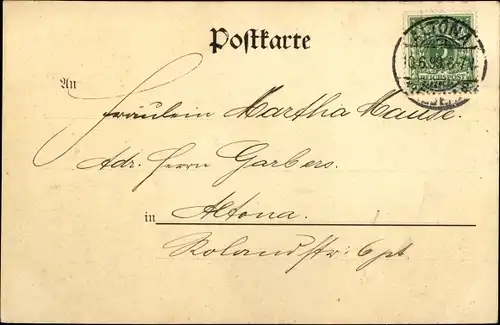 Postkarte
ALTONA
10.6.99. 6-7 N.
REICHSPOST
An
Fräulein Martha Mause.
Adr. Herrn Garbers.
in Altona.
Rolandstr: 6 pt.